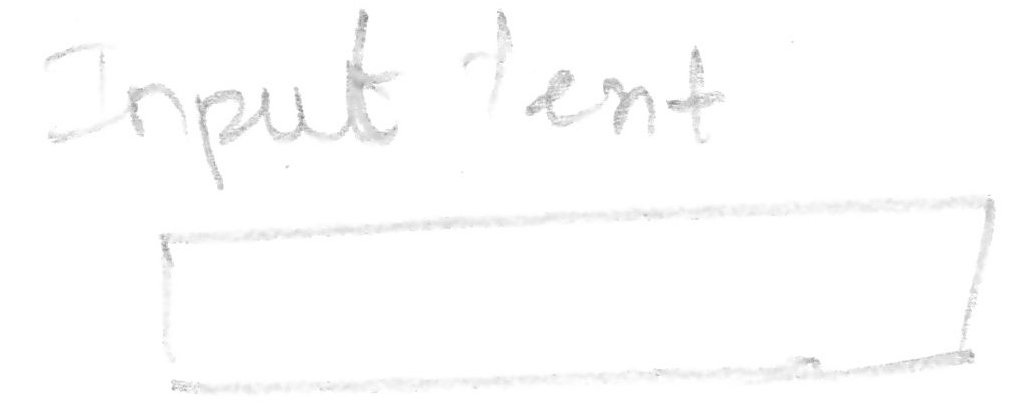 Input Text